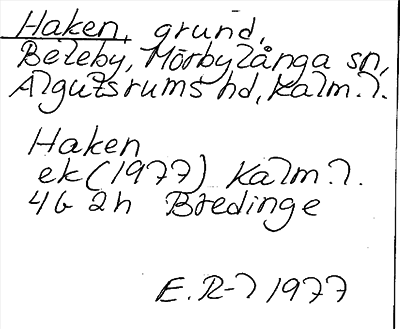 Haken, grund,
Beteby, Mörbylånga sn,
Algutsrums hd, Kalm. l.
Haken
ek (1977) Kalm. l.
4G 2h Bredinge
E. R-l 1977